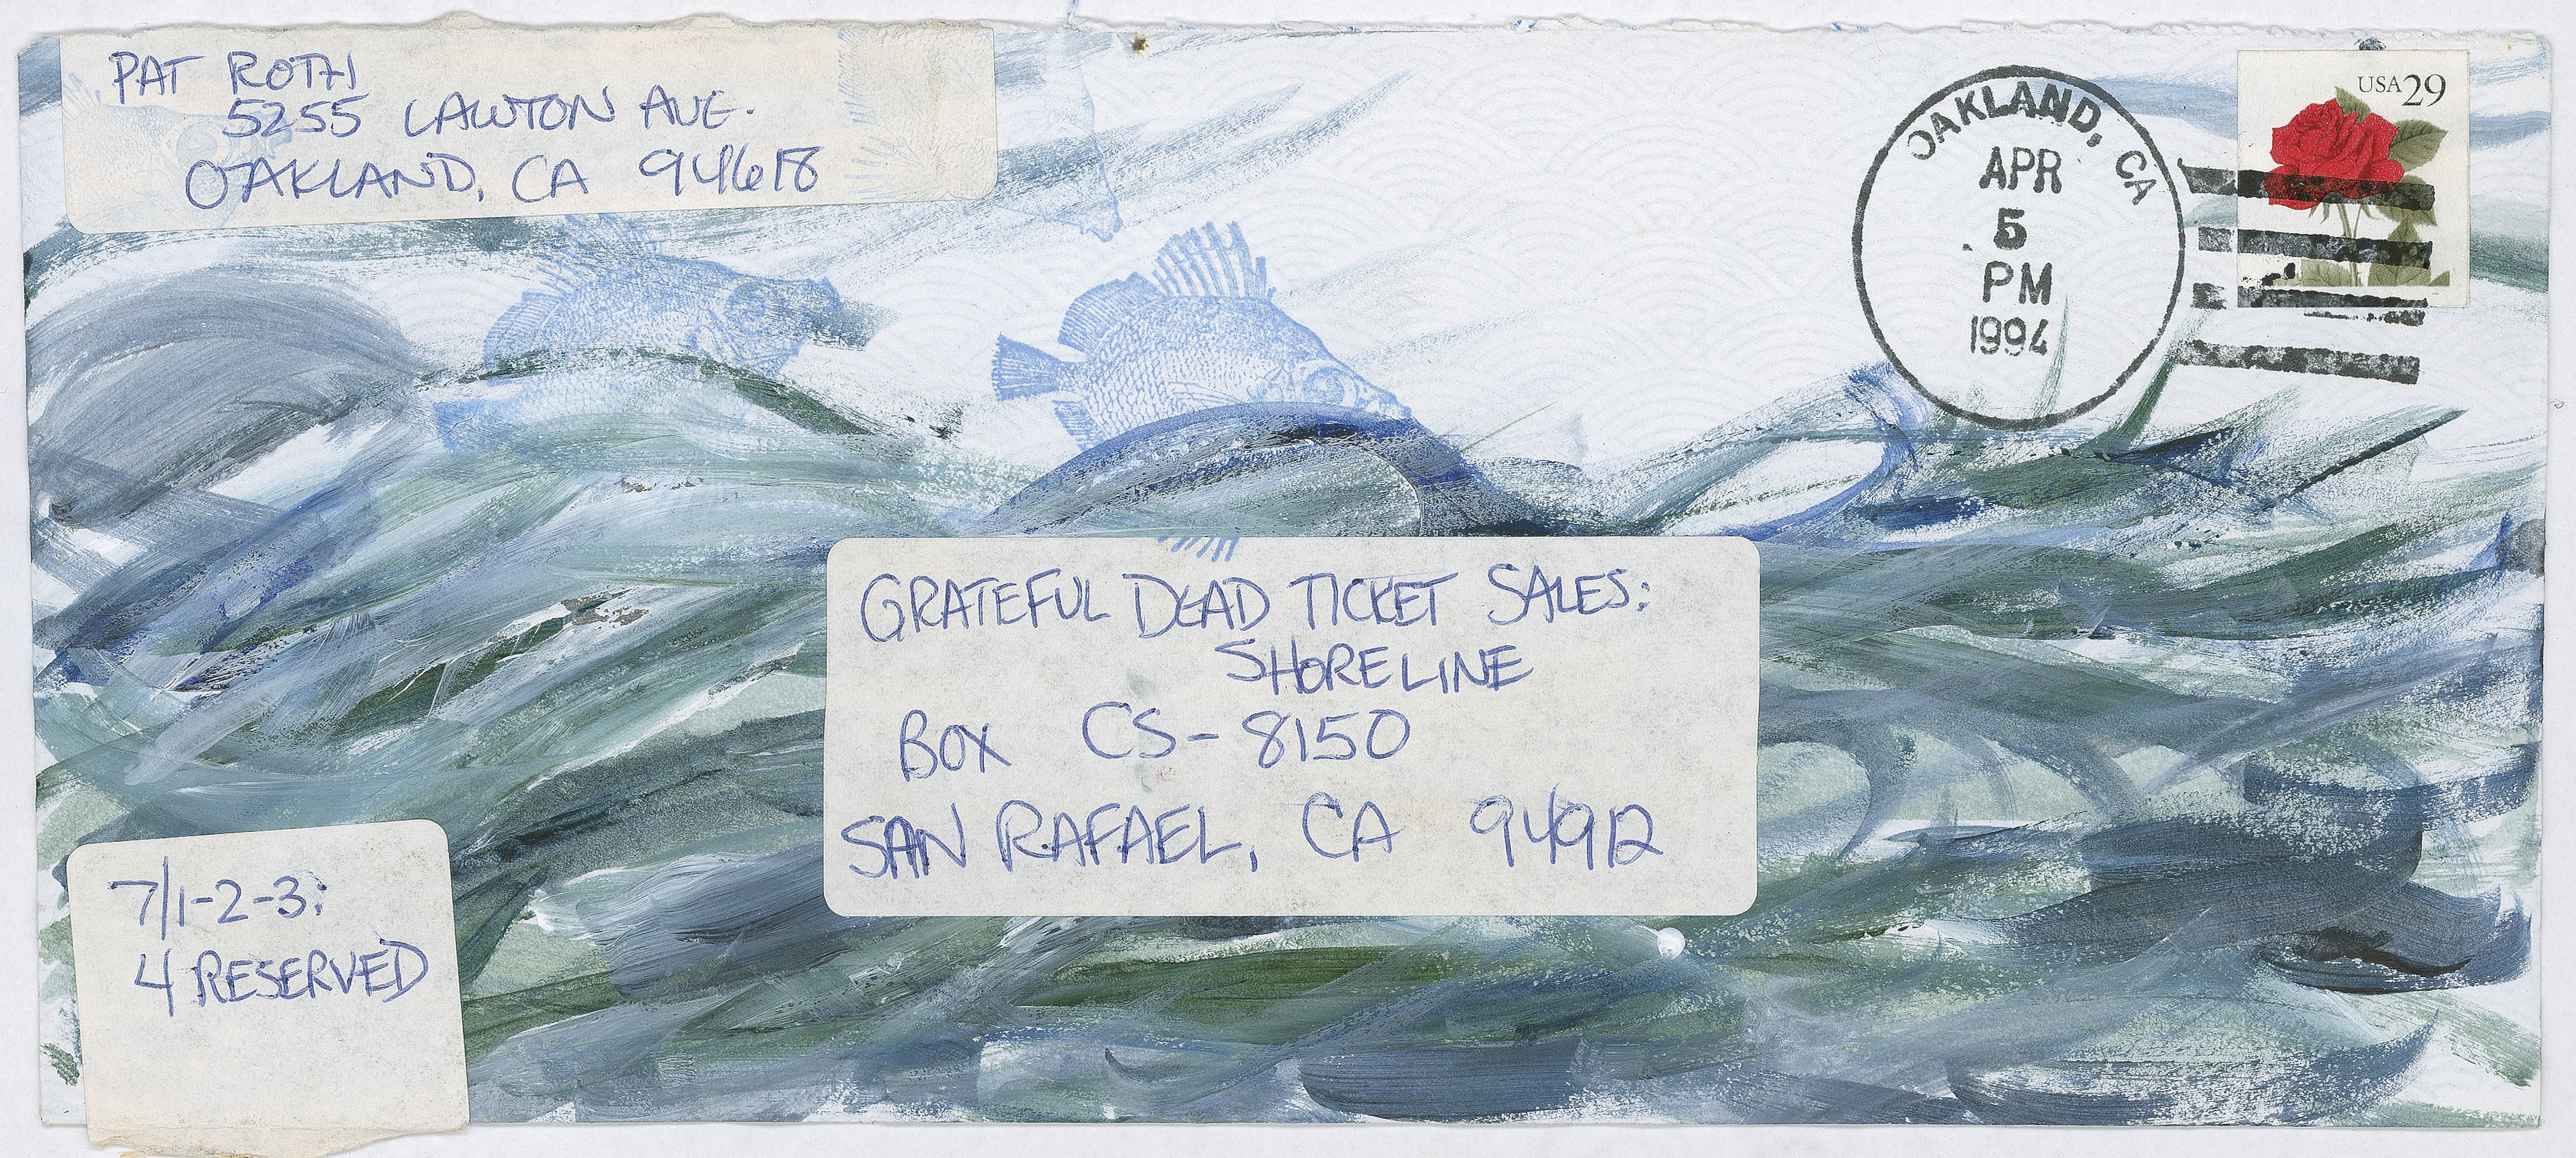 PAT ROTH
5255 LAWTON AVE.
OAKLAND, CA 94618
OAKLAND, CA
APR
5
PM
1994
USA 29
GRATEFUL DEAD TICKET SALES:
SHORELINE
BOX CS-8150
SAN RAFAEL, CA 94912
7/1-2-3:
4 RESERVED